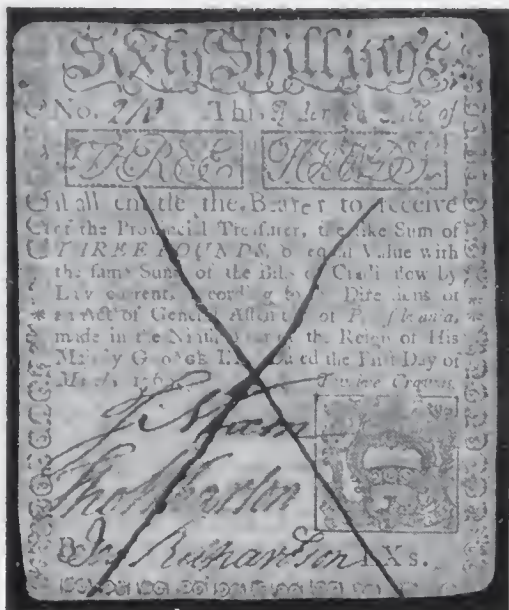 Sixty Shilling's
No. This Indented Bill of
THREE POUNDS,
shall entitle the Bearer to receive
of the Provincial Treasurer, the like Sum of
THREE POUNDS, of equal Value with
the same Sum of the Bills of Credit now by
Law current, according to the Directions of
an Act of General Assembly of Pennsylvania,
made in the Ninth Year of the Reign of His
Majesty George III. Dated the First Day of
March, Twelve Crowns.
Richardson
LXs.